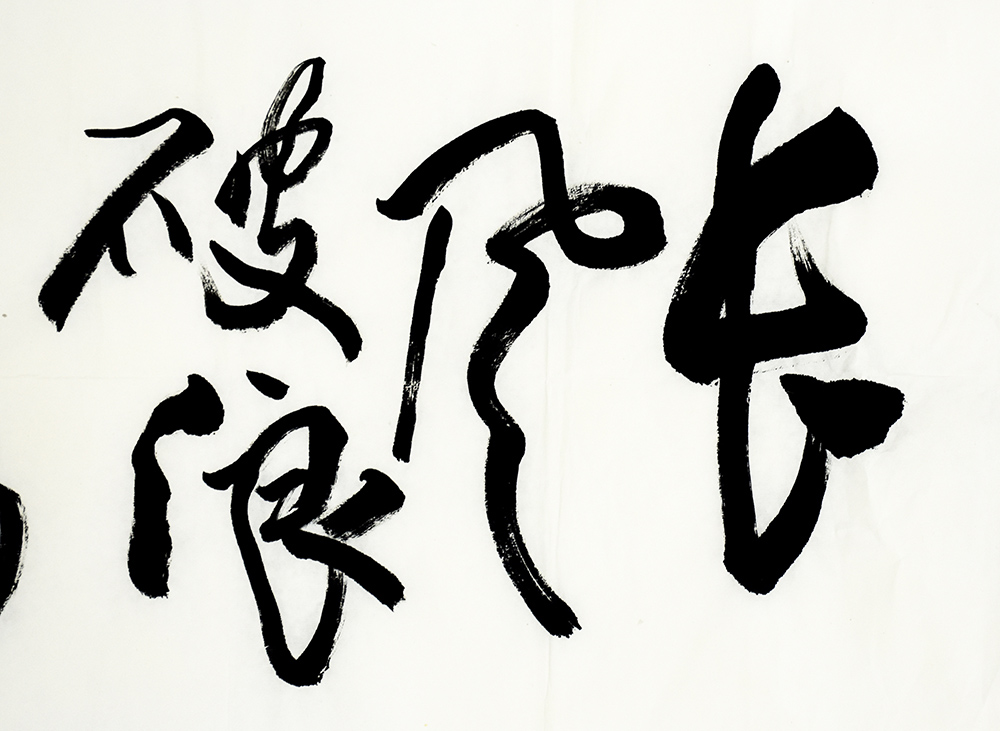 长
风
破浪